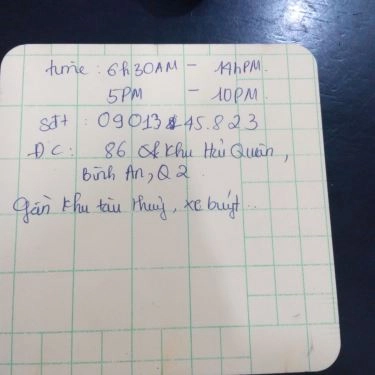 time : 6h30AM - 14hPM.
5PM - 10PM.
sđt : 09013 45.823
ĐC : 86 Khu Hải Quân,
Bình An, Q2.
gần khu tàu thuỷ, xe buýt..